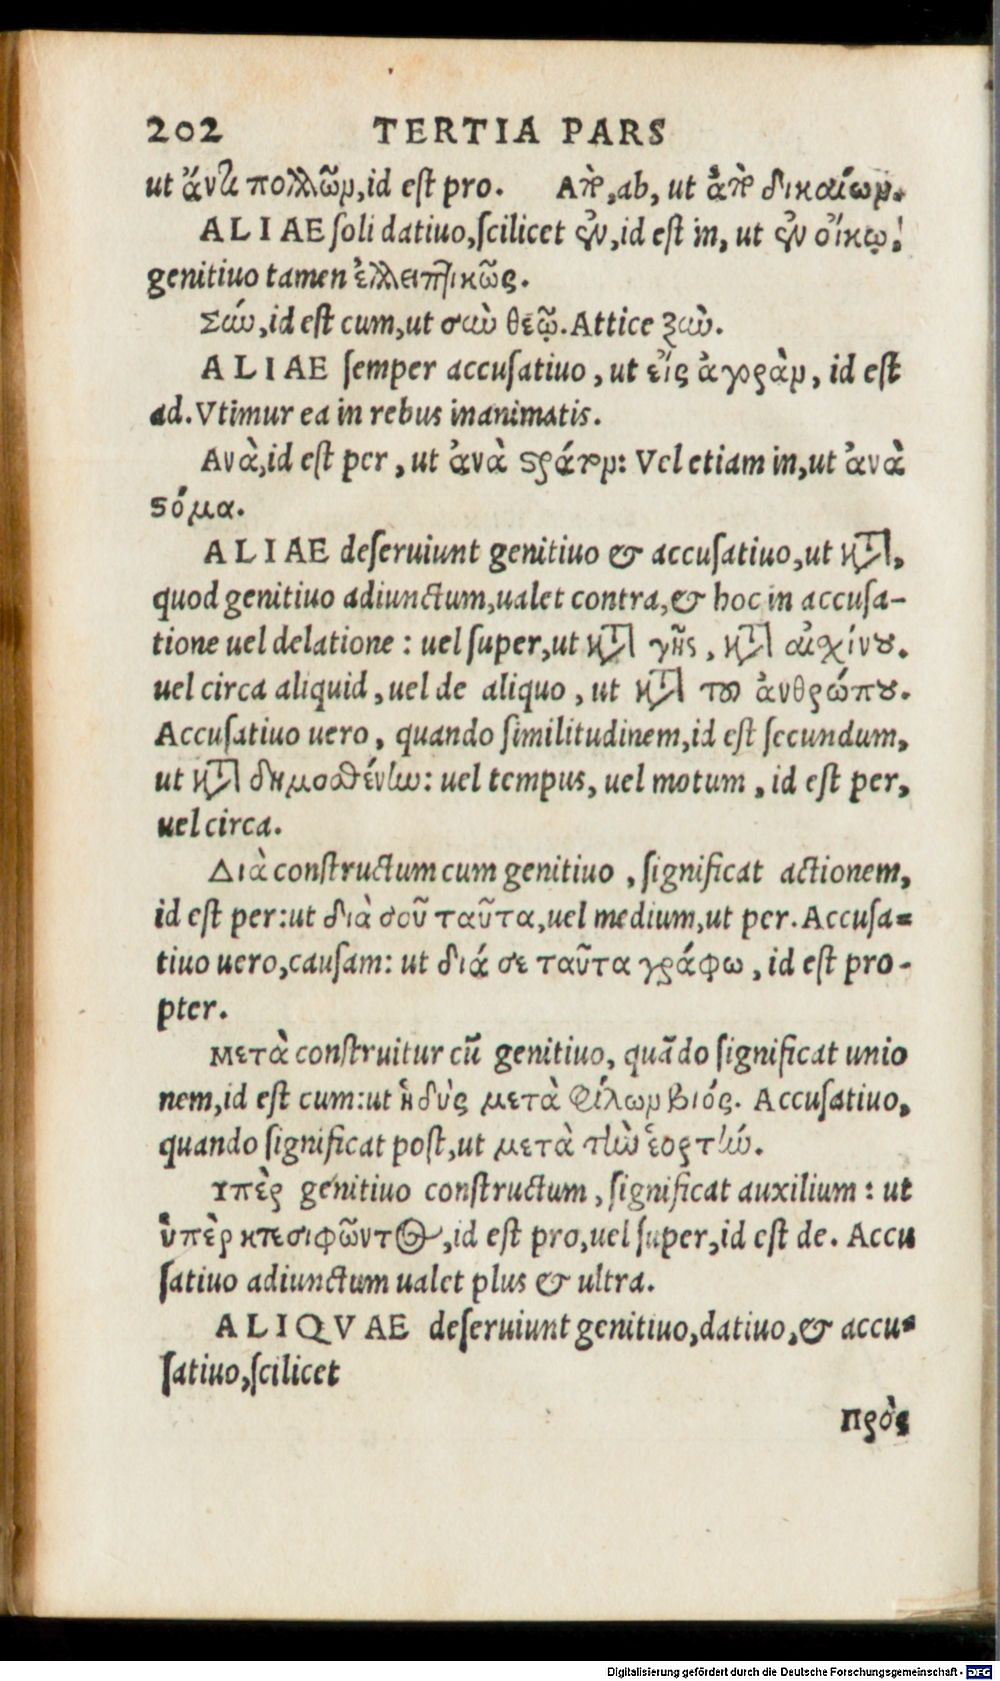 202 TERTIA PARS
ut ἄντι πολλῶν, id est pro. Ἀπὸ, ab, ut ἀπὸ δικαίων.
ALIAE soli datiuo, scilicet ἐν, id est in, ut ἐν οἴκῳ:
genitiuo tamen ἐλλειπτικῶς.
Σὺν, id est cum, ut σὺν θεῷ. Attice ξὺν.
ALIAE semper accusatiuo, ut εἰς ἀγορὰν, id est
ad. Vtimur ea in rebus inanimatis.
Ἀνὰ, id est per, ut ἀνὰ στράτον: Vel etiam in, ut ἀνὰ
στόμα.
ALIAE deseruiunt genitiuo & accusatiuo, ut κατὰ,
quod genitiuo adiunctum, ualet contra, & hoc in accusa-
tione uel delatione: uel super, ut κατὰ γῆς, κατὰ αἰσχίνου.
uel circa aliquid, uel de aliquo, ut κατὰ τοῦ ἀνθρώπου.
Accusatiuo uero, quando similitudinem, id est secundum,
ut κατὰ δημοσθένην: uel tempus, uel motum, id est per,
uel circa.
Διὰ constructum cum genitiuo, significat actionem,
id est per: ut διὰ σοῦ ταῦτα, uel medium, ut per. Accusa-
tiuo uero, causam: ut διά σε ταῦτα γράφω, id est pro-
pter.
Μετὰ construitur cũ genitiuo, quãdo significat unio
nem, id est cum: ut ἡδὺς μετὰ φίλων βιός. Accusatiuo,
quando significat post, ut μετὰ τὴν ἑορτήν.
Υπὲρ genitiuo constructum, significat auxilium: ut
ὑπὲρ κτεσιφῶντος, id est pro, uel super, id est de. Accu
satiuo adiunctum ualet plus & ultra.
ALIQVAE deseruiunt genitiuo, datiuo, & accu-
satiuo, scilicet
Πρὸς
Digitalisierung gefördert durch die Deutsche Forschungsgemeinschaft - DFG